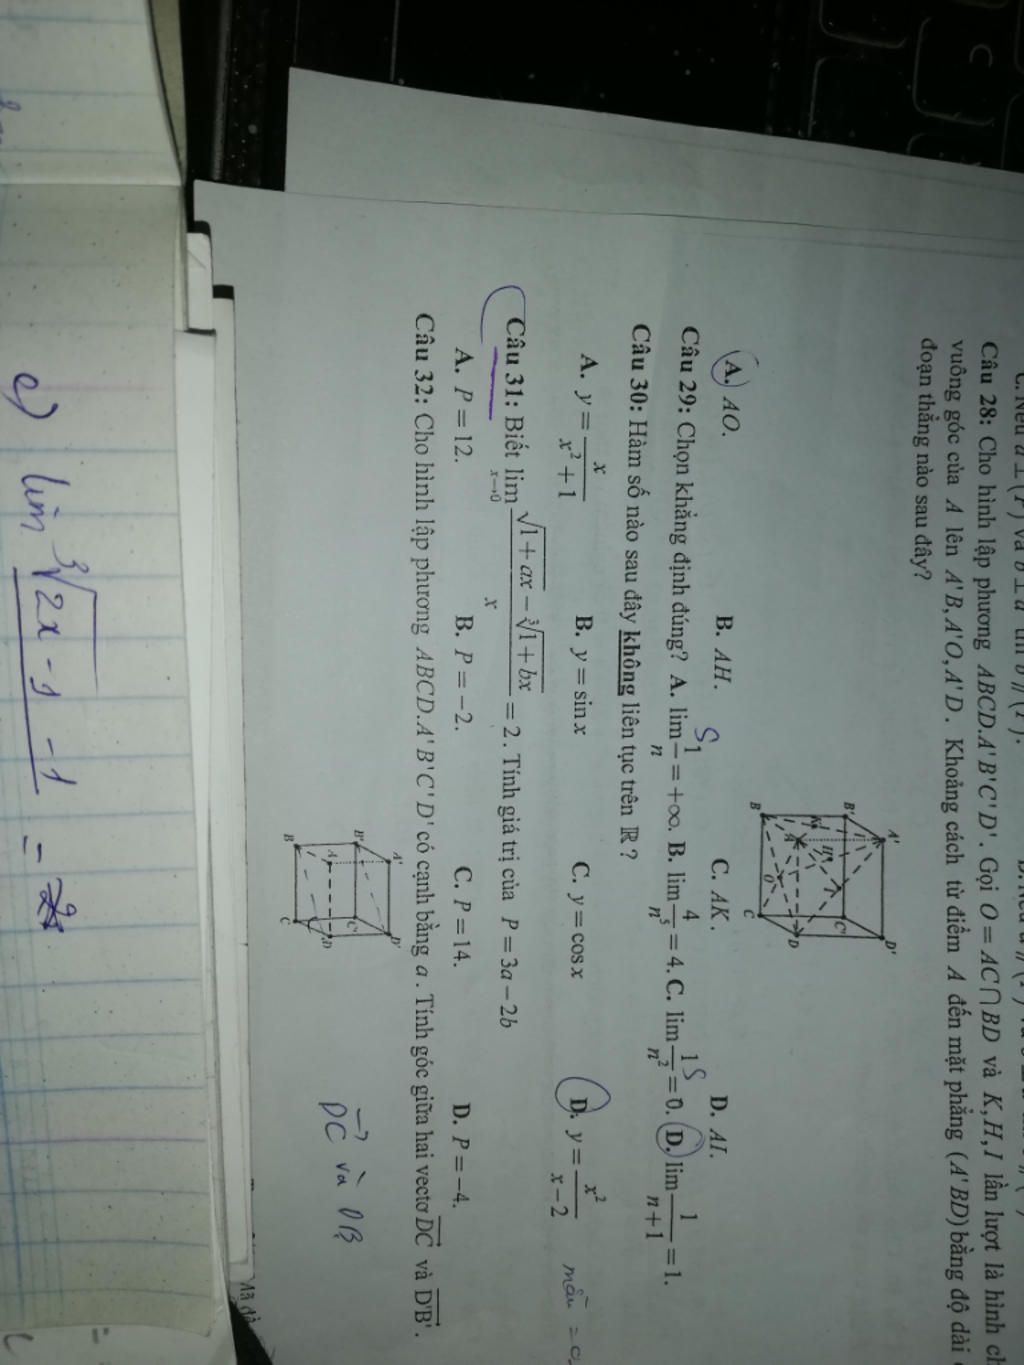 Câu 28: Cho hình lập phương ABCD.A'B'C'D'. Gọi O = AC ∩ BD và K, H, I lần lượt là hình
vuông góc của A lên A'B, A'O, A'D. Khoảng cách từ điểm A đến mặt phẳng (A'BD) bằng độ dài
đoạn thẳng nào sau đây?
A' D' B' C' K H A D O B C
A. AO. B. AH. C. AK. D. AI.
Câu 29: Chọn khẳng định đúng? A. lim 1/n = +∞. B. lim 4/n⁵ = 4. C. lim 1/n² = 0. D. lim 1/(n+1) = 1.
S S
Câu 30: Hàm số nào sau đây không liên tục trên ℝ?
A. y = x/(x²+1) B. y = sin x C. y = cos x D. y = x²/(x−2)
mẫu =
Câu 31: Biết lim x→0 (√(1+ax) − ∛(1+bx))/x = 2. Tính giá trị của P = 3a − 2b
A. P = 12. B. P = −2. C. P = 14. D. P = −4.
Câu 32: Cho hình lập phương ABCD.A'B'C'D' có cạnh bằng a. Tính góc giữa hai vectơ DC⃗ và D'B'⃗.
A' D' B' C' A D B C
DC⃗ và DB
Mã đề
e) lim (∛(2x−1) − 1) =